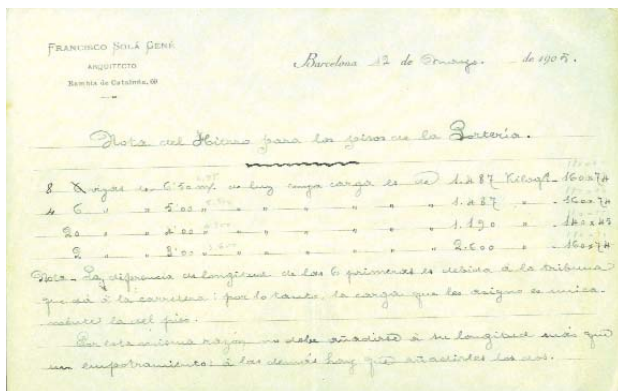 FRANCISCO SOLÁ GENÉ
ARQUITECTO
Rambla de Cataluña, 60
Barcelona 12 de Mayo de 190
Nota del Hierro para los pisos de la Portería.
8 vigas con 6'50 m/. de luz cuya carga es de 1.487 Kilogs - 160x74
4 6 " " 5'00 " " " " " " 1.487 " - 160x74
20 " " 4'00 " " " " " " 1.190 " - 140x
2 " " 3'00 " " " " " " 2.600 " - 160x74
Nota - La diferencia de longitud de las 6 primeras es debida á la tribuna
que dá á la carretera; por lo tanto, la carga que les asigno es unica-
mente la del piso.
Por esta misma razón no debe añadirse á su longitud más que
un empotramiento; á las demás hay que añadirles los dos.